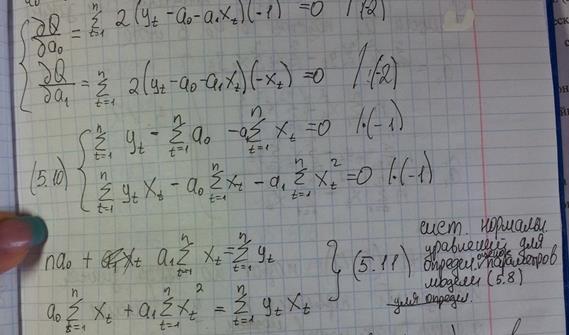 ∂Q/∂a₀ = Σₜ₌₁ⁿ 2(yₜ - a₀ - a₁xₜ)(-1) = 0 /:(-2)
∂Q/∂a₁ = Σₜ₌₁ⁿ 2(yₜ - a₀ - a₁xₜ)(-xₜ) = 0 /:(-2)
Σₜ₌₁ⁿ yₜ - Σₜ₌₁ⁿ a₀ - a₁Σₜ₌₁ⁿ xₜ = 0 /·(-1)
(5.10)
Σₜ₌₁ⁿ yₜxₜ - a₀Σₜ₌₁ⁿ xₜ - a₁Σₜ₌₁ⁿ xₜ² = 0 /·(-1)
na₀ + a₁Σₜ₌₁ⁿ xₜ = Σₜ₌₁ⁿ yₜ
a₀Σₜ₌₁ⁿ xₜ + a₁Σₜ₌₁ⁿ xₜ² = Σₜ₌₁ⁿ yₜxₜ
} (5.11)
сист. нормальн.
уравнений для
определ. параметров
модели (5.8)
для определ.